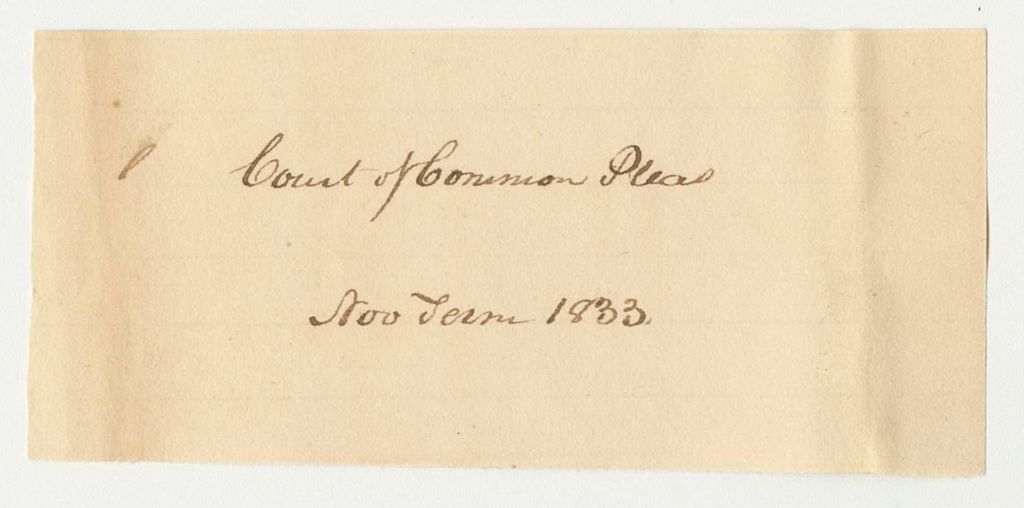 Court of Common Pleas
Nov Term 1833.